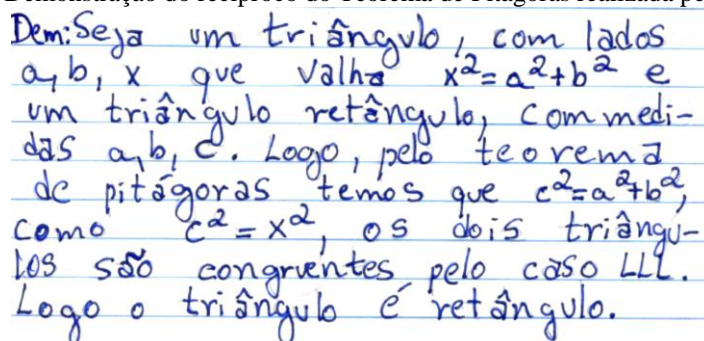 Demonstração do recíproco do Teorema de Pitágoras realizada pe
Dem: Seja um triângulo, com lados
a, b, x que valha x²=a²+b² e
um triângulo retângulo, com medi-
das a, b, c. Logo, pelo teorema
de pitágoras temos que c²=a²+b²,
como c²=x², os dois triângu-
los são congruentes pelo caso LLL.
Logo o triângulo é retângulo.